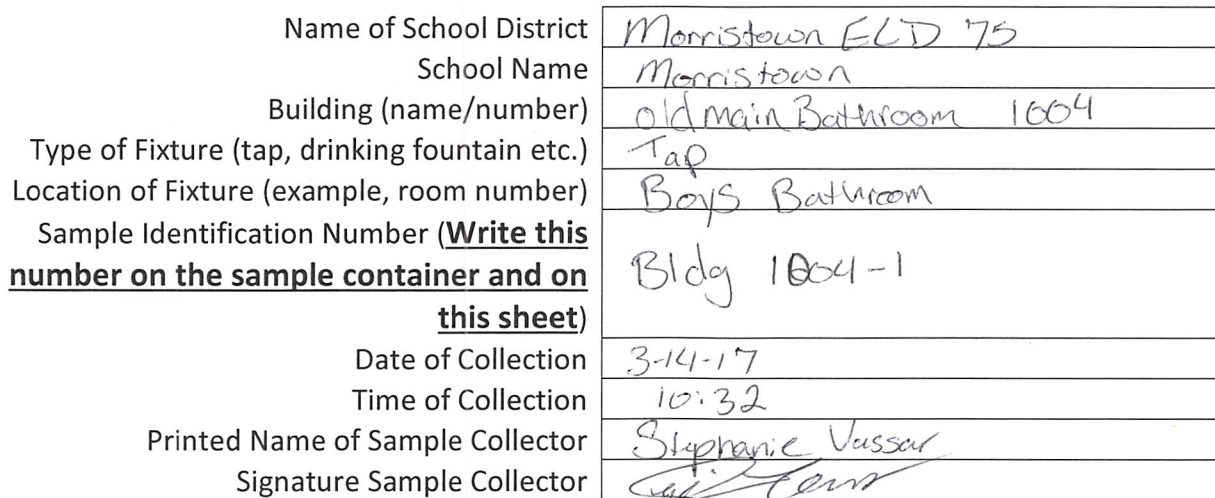 Name of School District Morristown ELD 75
School Name Morristown
Building (name/number) old main Bathroom 1004
Type of Fixture (tap, drinking fountain etc.) Tap
Location of Fixture (example, room number) Boys Bathroom
Sample Identification Number (Write this
number on the sample container and on
this sheet) Bldg 1004-1
Date of Collection 3-14-17
Time of Collection 10:32
Printed Name of Sample Collector Stephanie Vassar
Signature Sample Collector